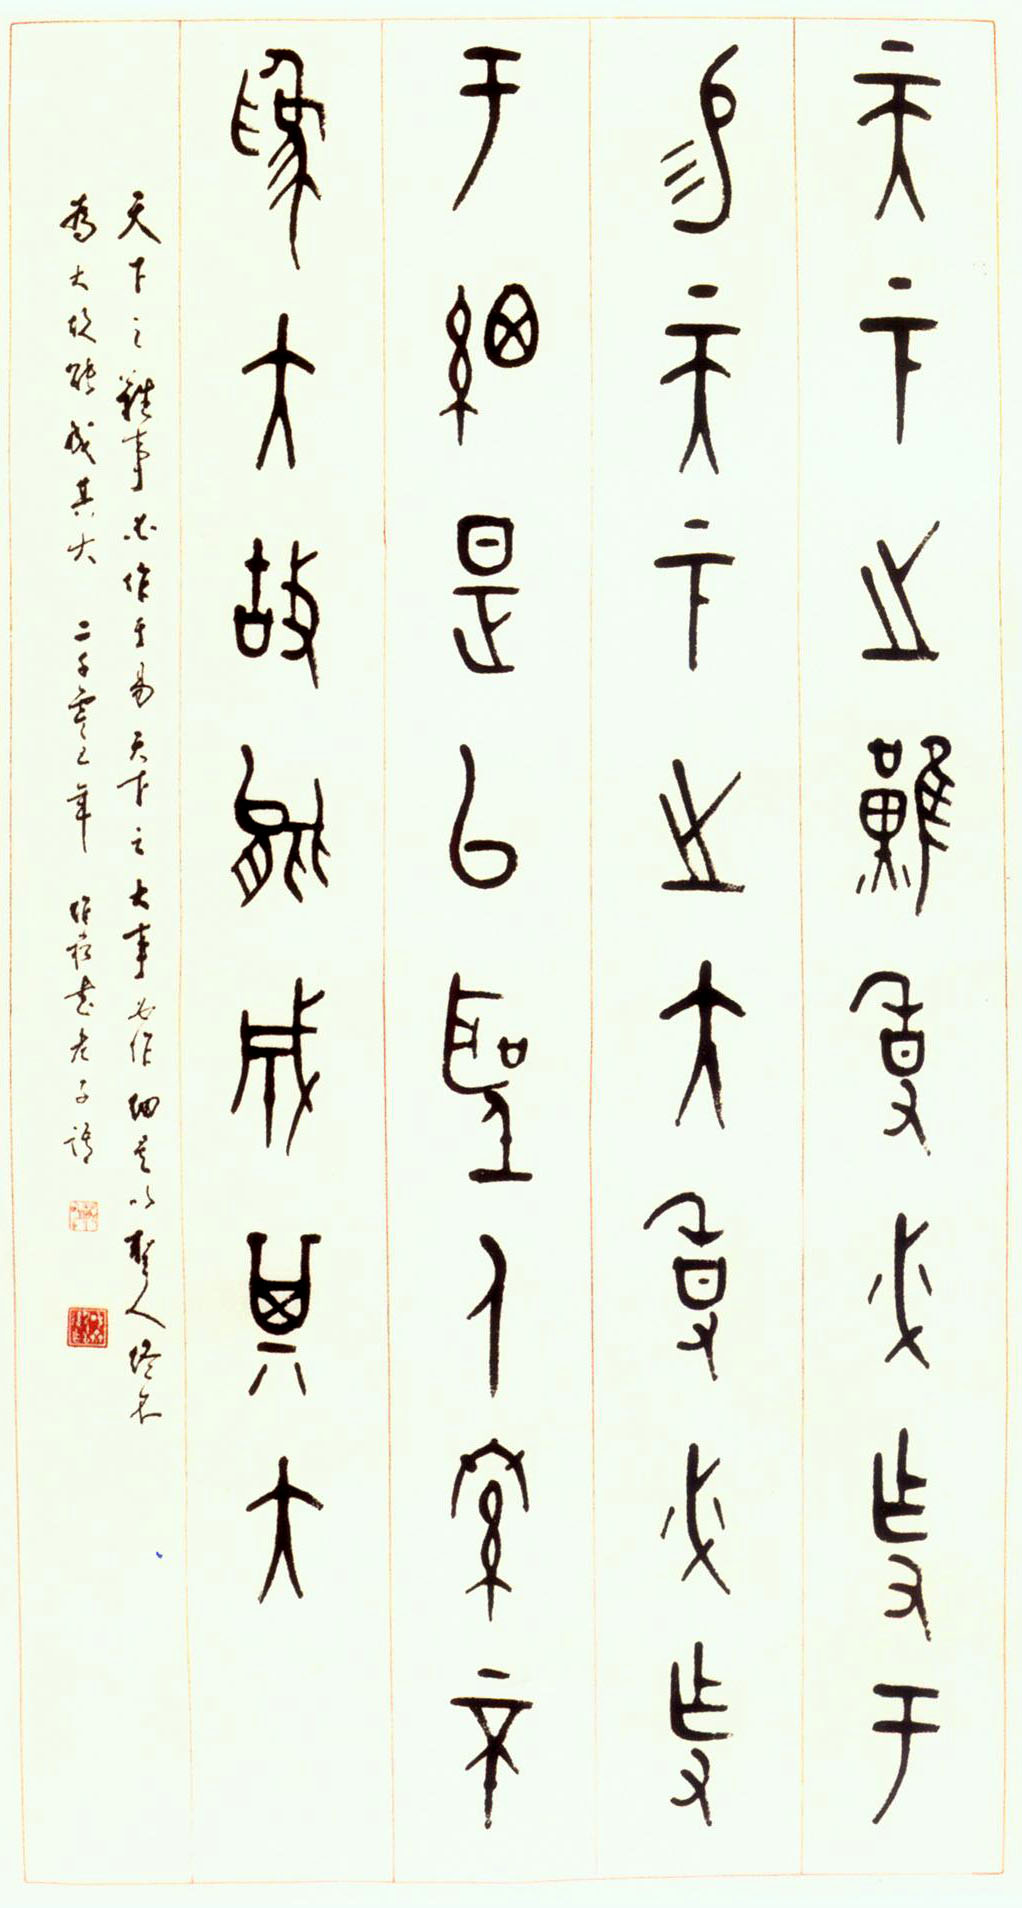 天下之難事必作于
易天下之大事必作
于細是以聖人終不
爲大故能成其大
天下之難事必作于易天下之大事必作細是以聖人終不
為大故能成其大 二千零 年 老子語